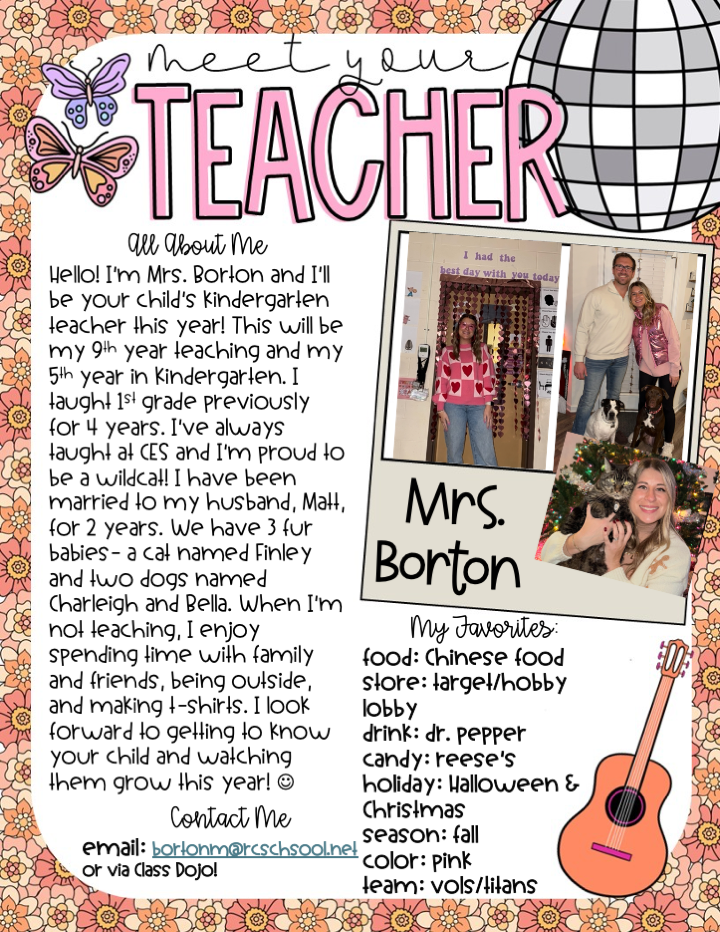 meet your
TEACHER
All About Me
Hello! I'm Mrs. Borton and I'll
be your child's Kindergarten
teacher this year! This will be
my 9th year teaching and my
5th year in Kindergarten. I
taught 1st grade previously
for 4 years. I've always
taught at CES and I'm proud to
be a wildcat! I have been
married to my husband, Matt,
for 2 years. We have 3 fur
babies- a cat named Finley
and two dogs named
Charleigh and Bella. When I'm
not teaching, I enjoy
spending time with family
and friends, being outside,
and making t-shirts. I look
forward to getting to know
your child and watching
them grow this year! ☺
Contact Me
email: bortonm@rcschsool.net
or via Class Dojo!
I had the
best day with you today
Mrs.
Borton
My Favorites:
food: Chinese food
store: target/hobby
lobby
drink: dr. pepper
candy: reese's
holiday: Halloween &
Christmas
season: fall
color: pink
team: vols/titans